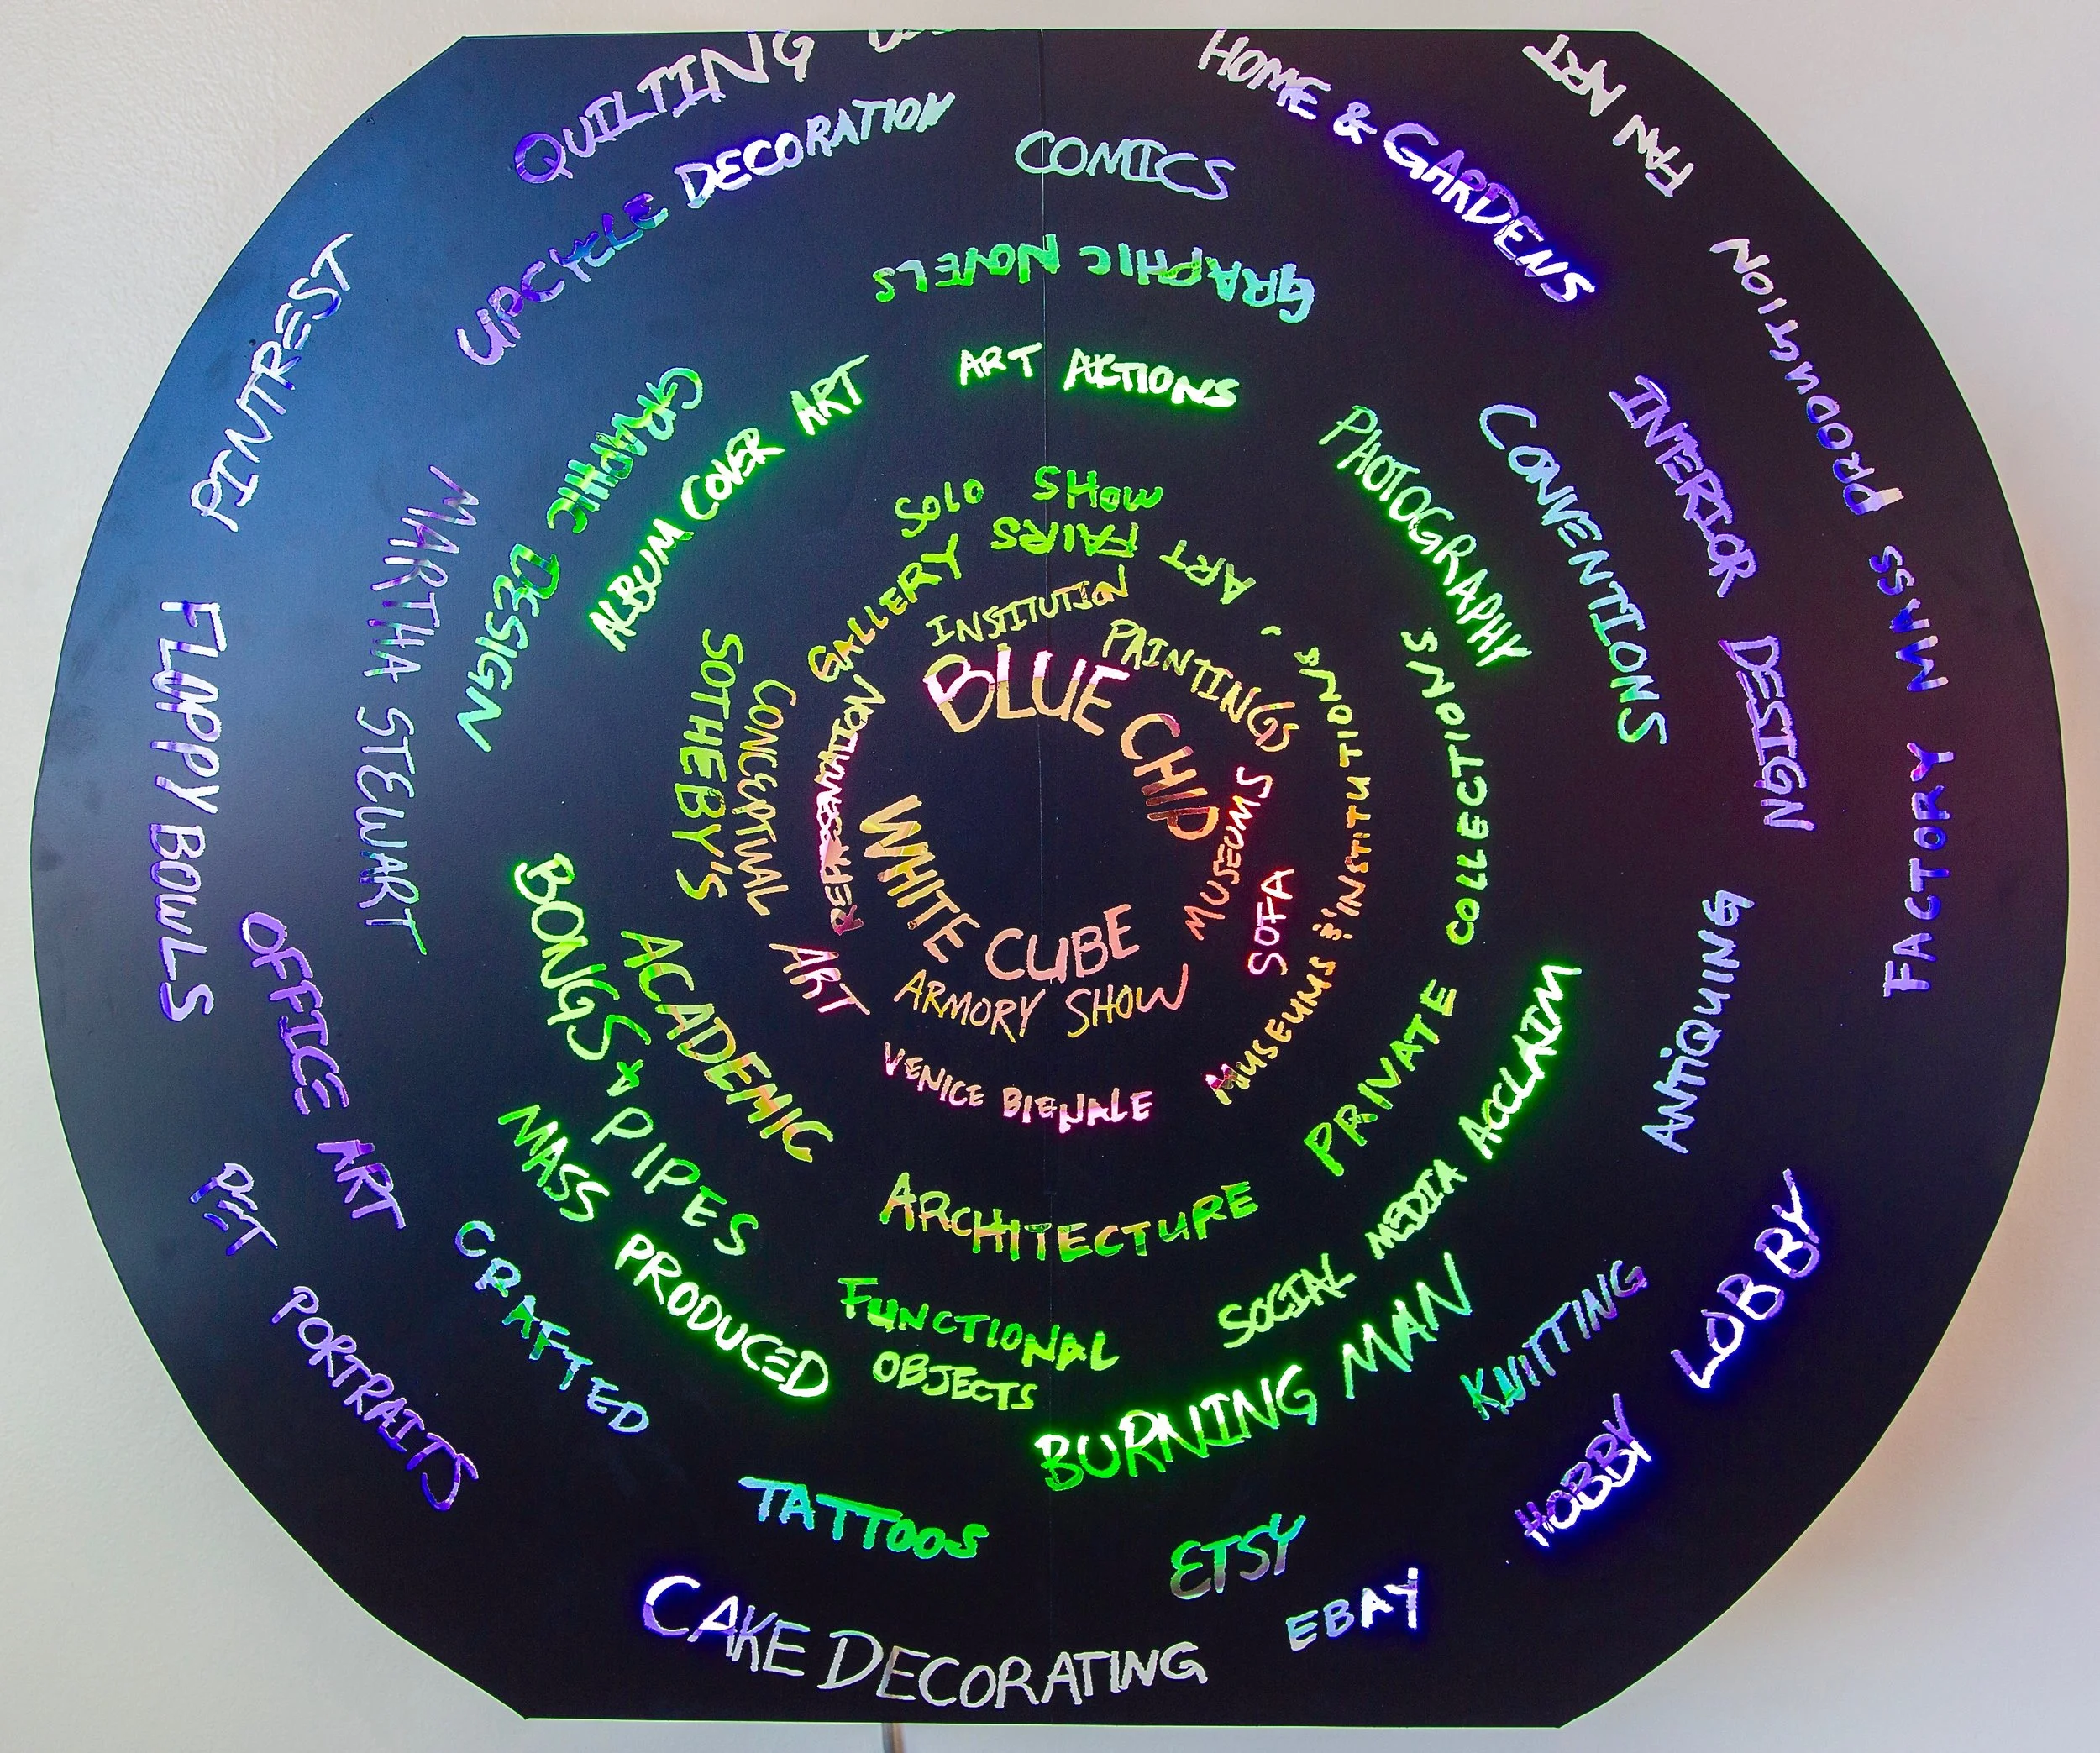 QUILTING
HOME & GARDENS
FAN ART
UPCYCLE DECORATION
COMICS
GRAPHIC NOVELS
FACTORY MASS PRODUCTION
PINTREST
MARTHA STEWART
GRAPHIC DESIGN
ALBUM COVER ART
ART ACTIONS
PHOTOGRAPHY
CONVENTIONS
INTERIOR DESIGN
SOLO SHOW
ART FAIRS
GALLERY
INSTITUTION
PAINTINGS
BLUE CHIP
WHITE CUBE
MUSEUMS
SOFA
MUSEUMS & INSTITUTIONS
PRIVATE COLLECTIONS
SOTHEBY'S
CONCEPTUAL ART
REPRESENTATION
ARMORY SHOW
VENICE BIENALE
FLOPPY BOWLS
OFFICE ART
BONGS & PIPES
ACADEMIC
ARCHITECTURE
SOCIAL MEDIA ACCLAIM
ANTIQUING
MASS PRODUCED
FUNCTIONAL
OBJECTS
BURNING MAN
KNITTING
LOBBY
HOBBY
PET PORTRAITS
CRAFTED
TATTOOS
ETSY
EBAY
CAKE DECORATING